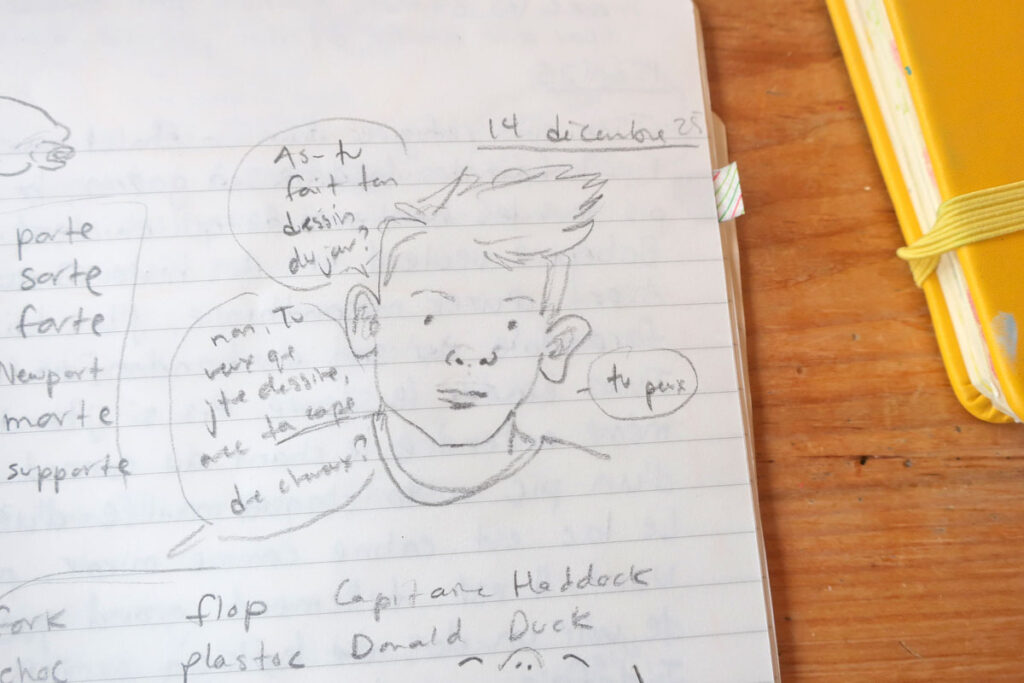 14 décembre 25
As-tu
fait ton
dessin
du jour?
non, Tu
veux que
j'te dessine,
avec ta coupe
de cheveux?
- tu peux
porte
sorte
forte
Newport
morte
supporte
fork
choc
flop
plastoc
Capitaine Haddock
Donald Duck